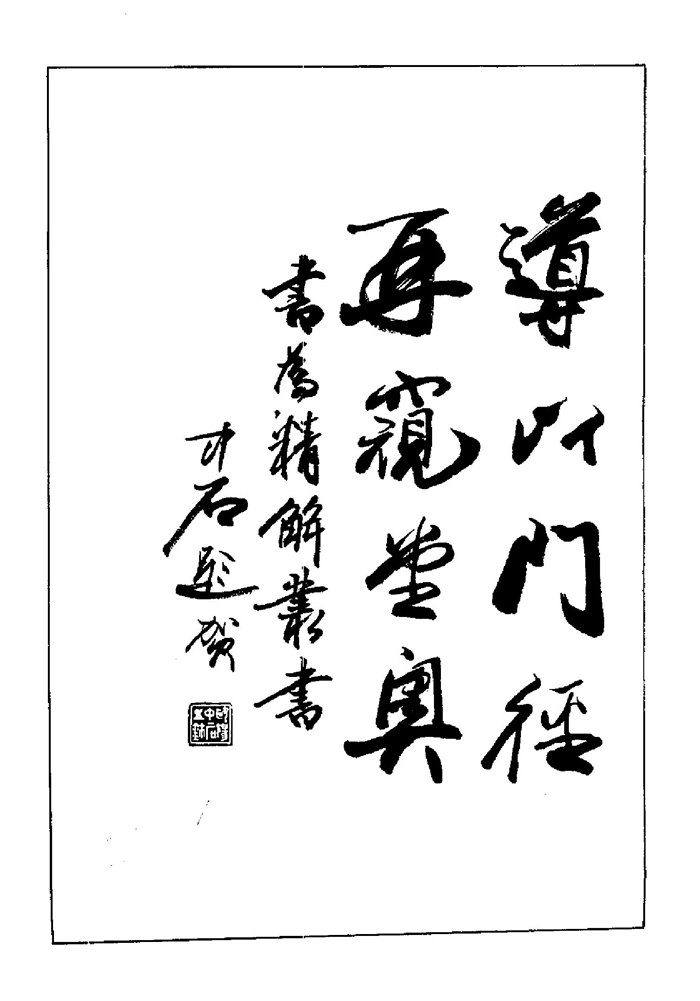 導以門徑
再窺堂奥
書為精解叢書
中石題賀